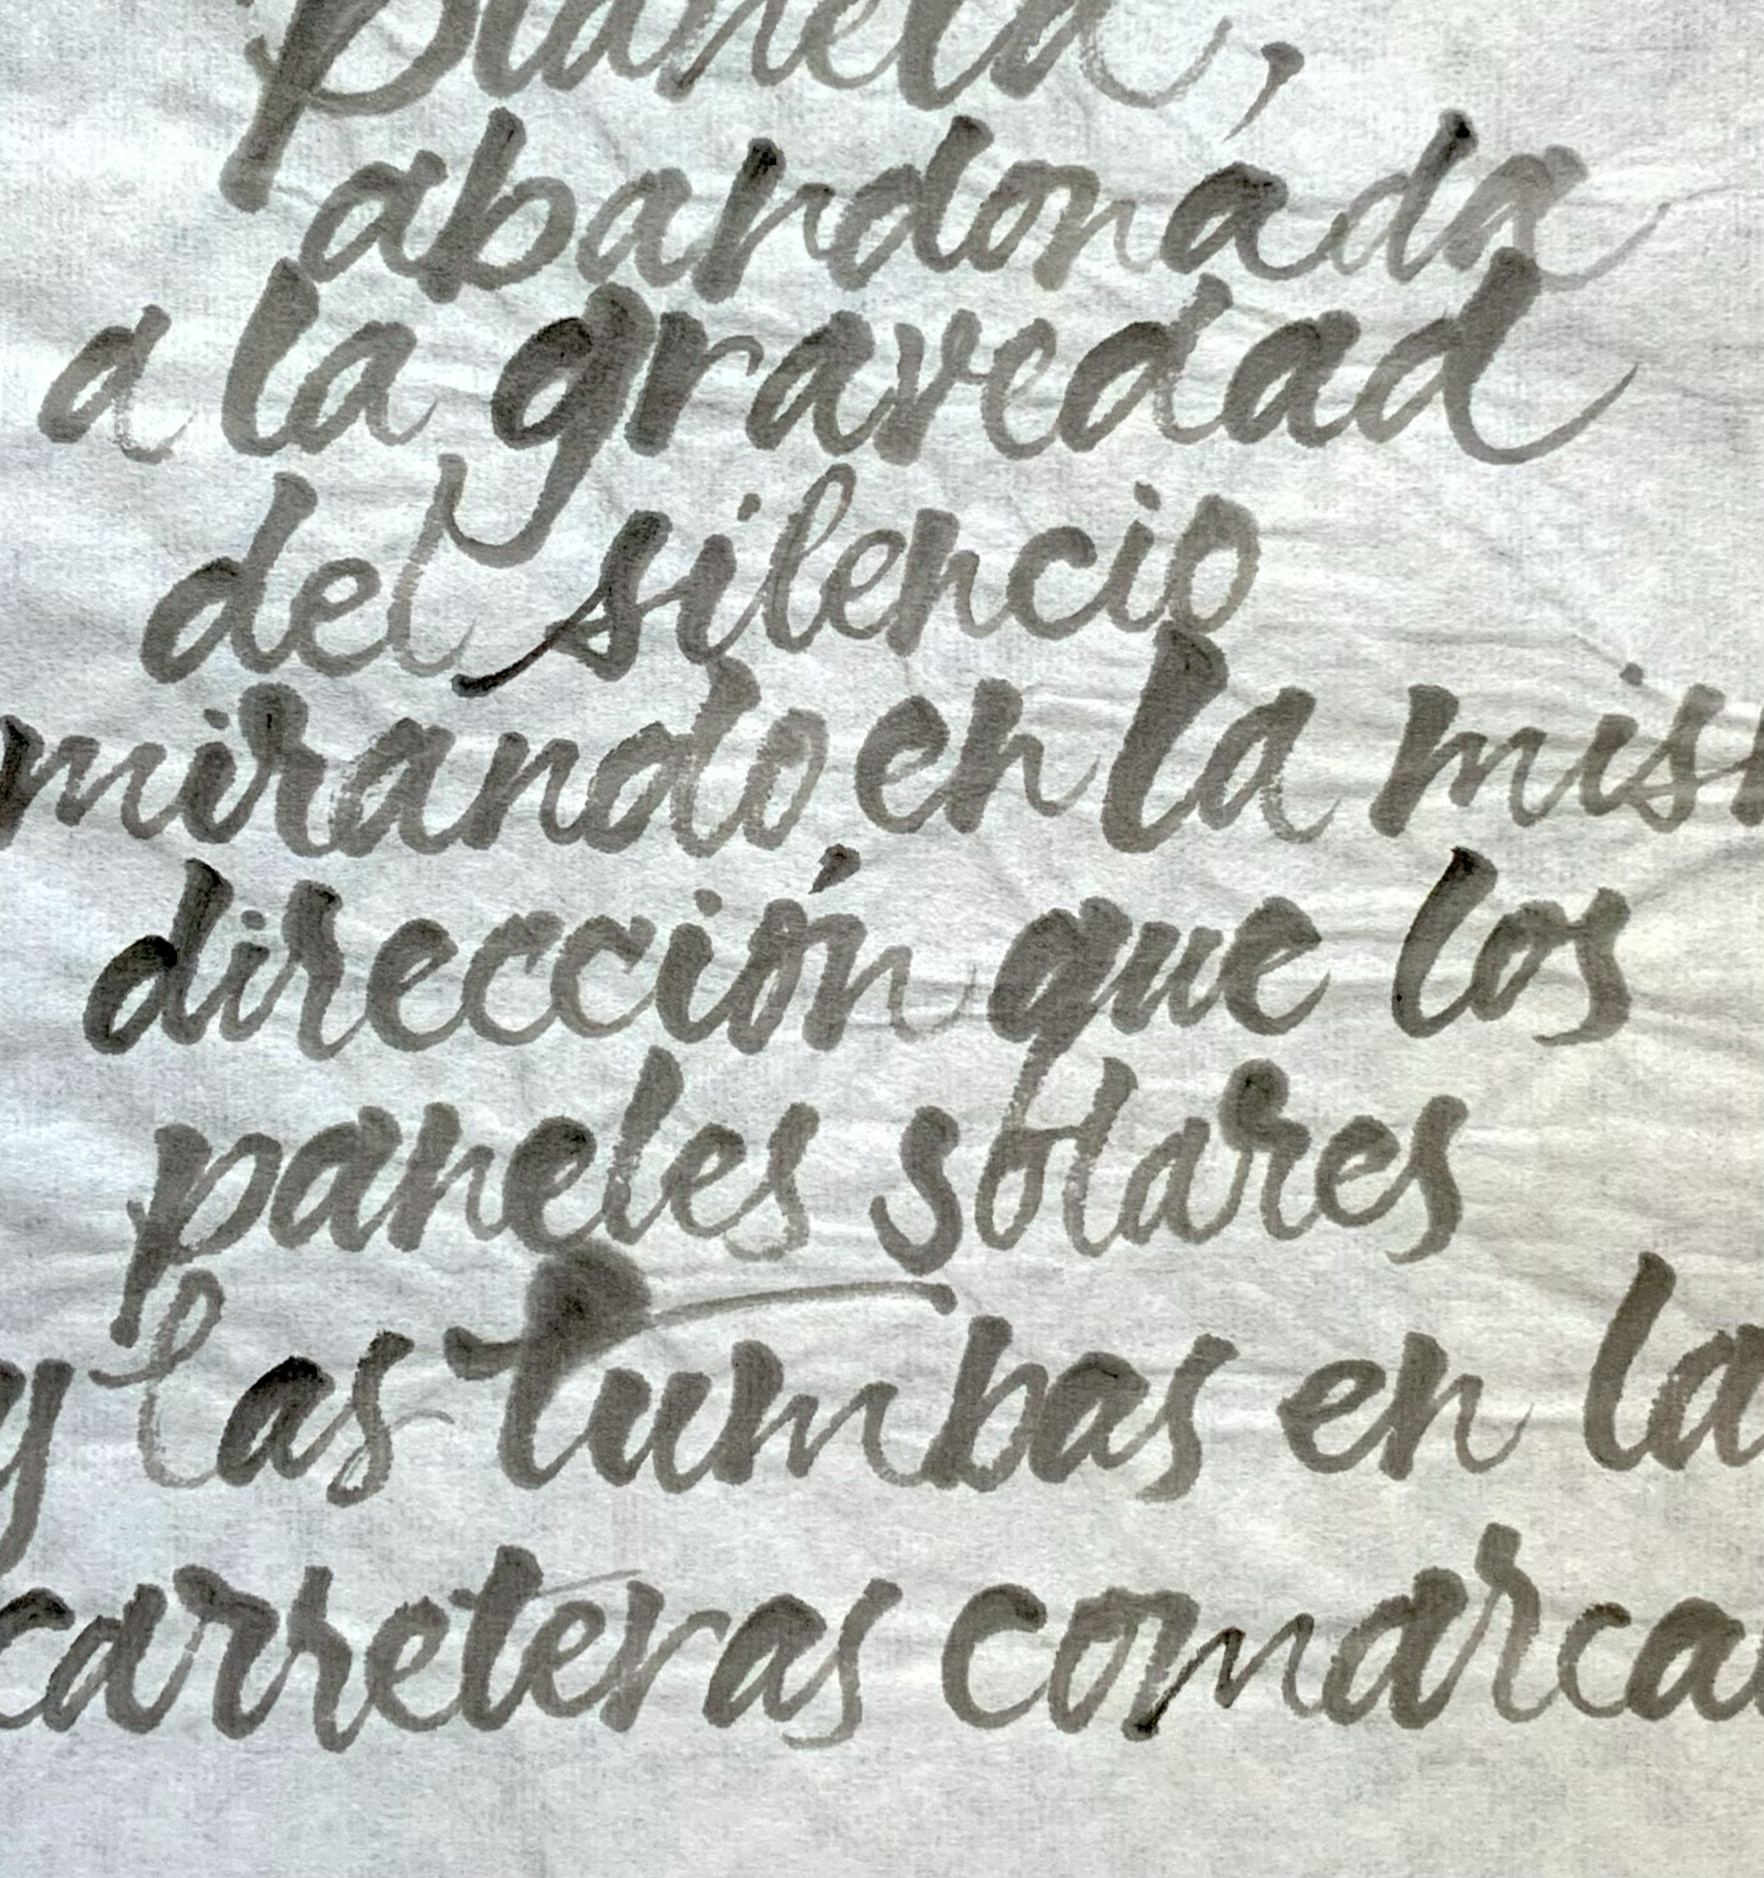 planeta,
abandonada
a la gravedad
del silencio
mirando en la mis
dirección que los
paneles solares
y las tumbas en la
carreteras comarca